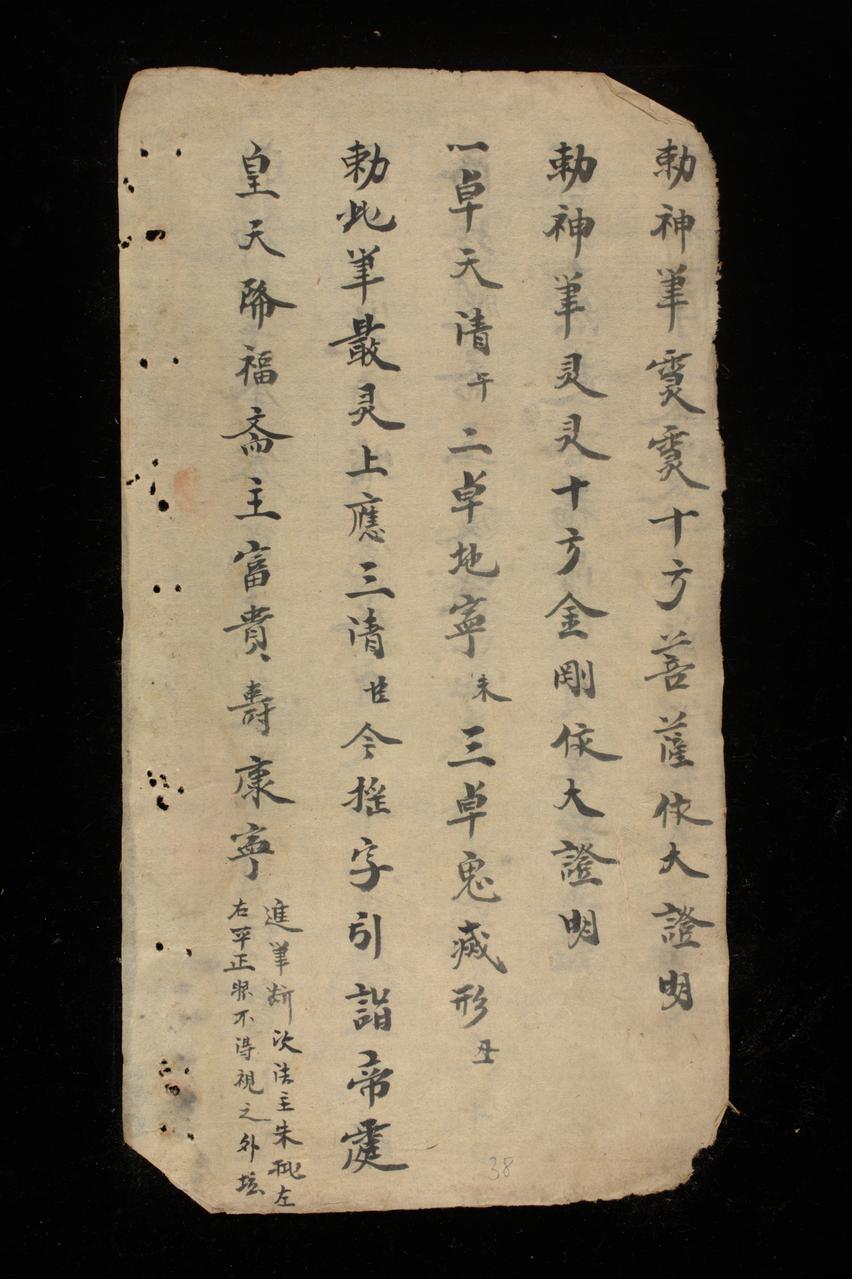 勅神筆䨩䨩十方菩薩依大證明
勅神筆灵灵十方金剛依大證明
一卓天清午二卓地寕未三卓鬼滅形丑
勅此筆最灵上應三清廿今摇字引詣帝霆
皇天降福斋主富貴、壽康寕
進筆 次法主朱 左
右平正 不得視之外坛
38